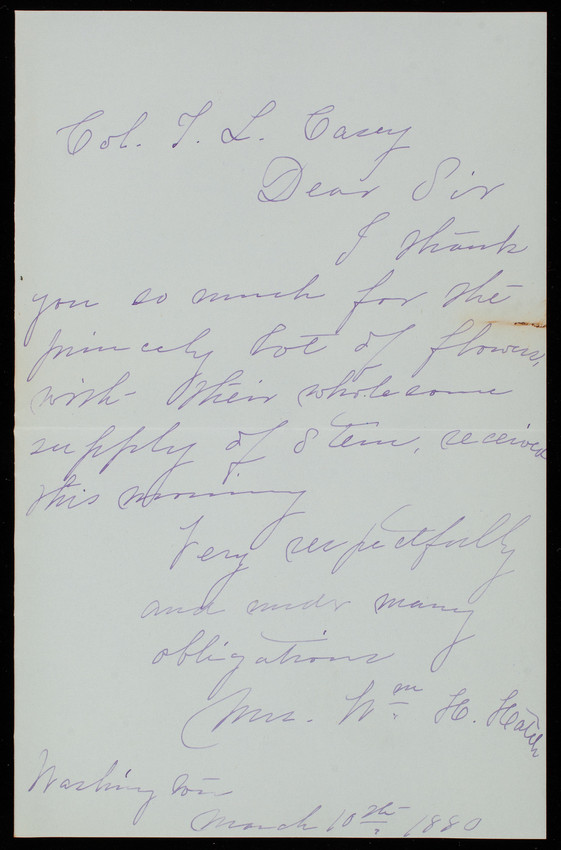 Col. T. L. Casey
Dear Sir
I thank
you so much for the
princely lot of flowers,
with their wholesome
supply of stem, received
this morning
Very respectfully
and under many
obligations
Mrs. Wm H. Hatch
Washington
March 10th 1880